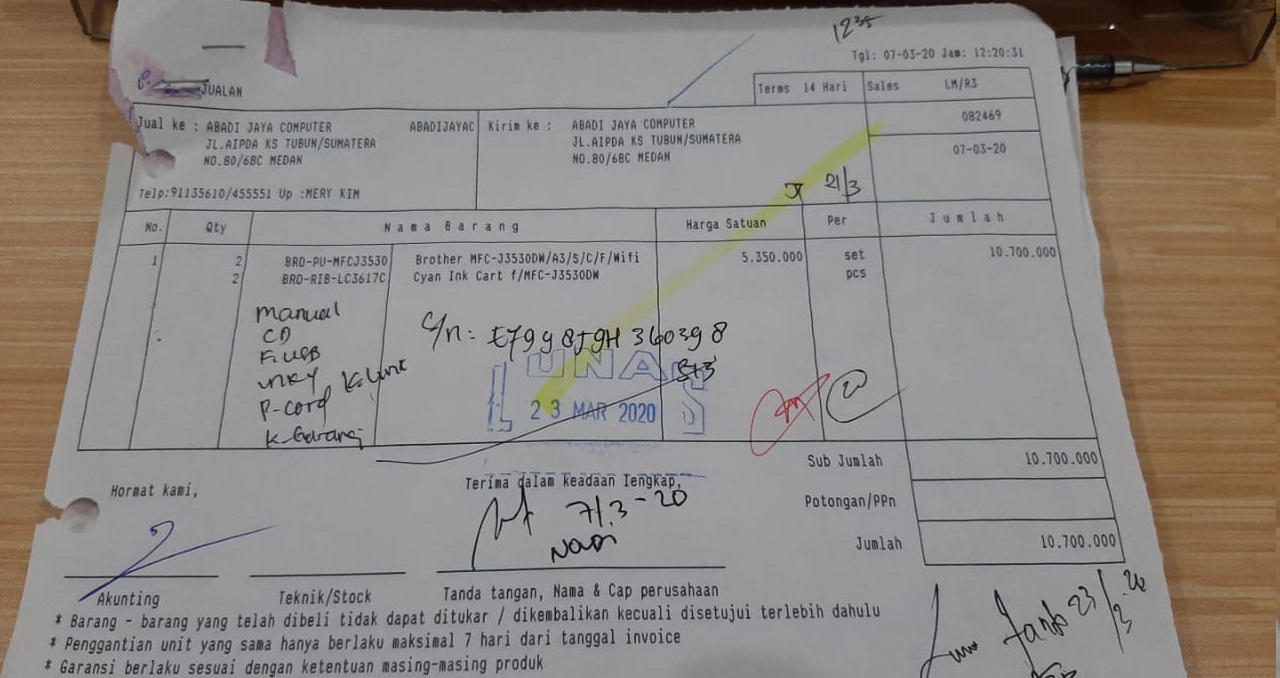 12³⁵
Tgl: 07-03-20 Jam: 12:20:31
JUALAN
Terms 14 Hari Sales LM/R3
082469
07-03-20
Jual ke : ABADI JAYA COMPUTER ABADIJAYAC
JL.AIPDA KS TUBUN/SUMATERA
NO.80/68C MEDAN
Telp:91135610/455551 Up :MERY KIM
Kirim ke : ABADI JAYA COMPUTER
JL.AIPDA KS TUBUN/SUMATERA
NO.80/68C MEDAN
21/3
No. Qty Nama Barang Harga Satuan Per Jumlah
1 2 BRO-PU-MFCJ3530 Brother MFC-J3530DW/A3/S/C/F/Wifi 5.350.000 set 10.700.000
2 BRO-RIB-LC3617C Cyan Ink Cart f/MFC-J3530DW pcs
Manual
CD
F. USB
P-cord
K-Garansi
LUNAS
23 MAR 2020
Sub Jumlah 10.700.000
Potongan/PPn
Jumlah 10.700.000
Hormat kami,
Terima dalam keadaan lengkap,
7/3-20
Akunting Teknik/Stock Tanda tangan, Nama & Cap perusahaan
* Barang - barang yang telah dibeli tidak dapat ditukar / dikembalikan kecuali disetujui terlebih dahulu
* Penggantian unit yang sama hanya berlaku maksimal 7 hari dari tanggal invoice
* Garansi berlaku sesuai dengan ketentuan masing-masing produk